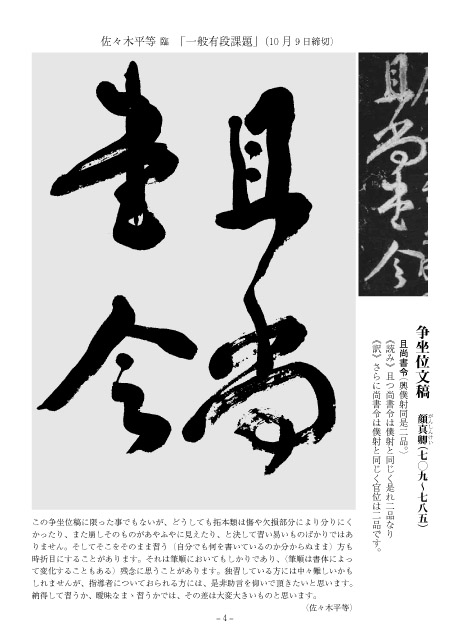 佐々木平等 臨 「一般有段課題」(10月9日締切)
且尚
書令
且尚書令
争坐位文稿 顔真卿(七〇九~七八五)
がんしんけい
且尚書令(與僕射同是二品。)
《読み》且つ尚書令は僕射と同じく是れ二品なり
《訳》さらに尚書令は僕射と同じく官位は二品です。
この争坐位稿に限った事でもないが、どうしても拓本類は傷や欠損部分により分りにく
かったり、また崩しそのものがあやふやに見えたり、と決して習い易いものばかりではあ
りません。そしてそこをそのまま習う(自分でも何を書いているのか分からぬまま)方も
時折目にすることがあります。それは筆順においてもしかりであり、(筆順は書体によっ
て変化することもある)残念に思うことがあります。独習している方には中々難しいかも
しれませんが、指導者についておられる方には、是非助言を仰いで頂きたいと思います。
納得して習うか、曖昧なまゝ習うかでは、その差は大変大きいものと思います。
(佐々木平等)
- 4 -